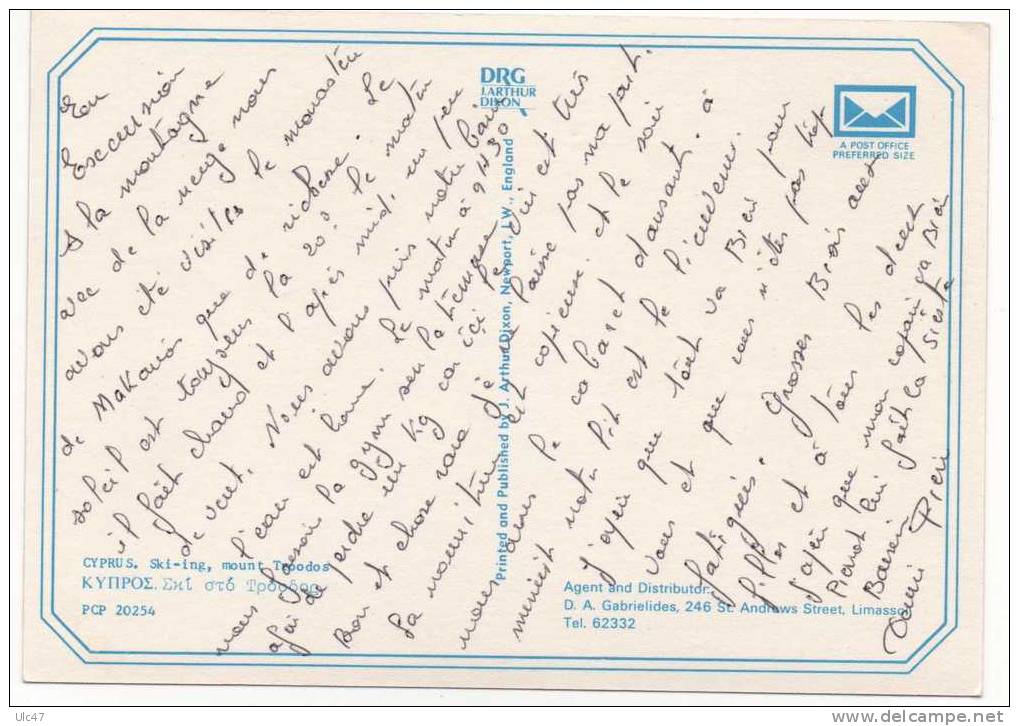 En
Excursion
A la montagne
avec de la neige nous
avons été visités le monastère
de Makarios que de richesse. Le
soleil est toujours la 20° le matin
il fait chaud et l'après midi un peu
de vent. Nous avons pris notre bain
l'eau est bonne. Le matin à 9H30
nous faisons la gym sur la
afin de perdre un Kg car ici le
Bon et chose rare je qui est très
La nourriture je laisse pas ma part.
nous est copieuse. et le soir
avons le cabaret dansant. à
minuit notre lit est le bienvenu.
J'espère que tout va Bien pour
vous et que vous n'êtes pas trop
fatigués. Grosses Bises avec
filles et à tous les deux
J'espère que mon copain va Bien
Pierrot lui fait la sieste
Baisers
DRG
J.ARTHUR
DIXON
A POST OFFICE
PREFERRED SIZE
Printed and Published by J. Arthur Dixon, Newport, I.W., England
CYPRUS. Ski-ing, mount Troodos
ΚΥΠΡΟΣ. Σκί στό Τρόοδος
PCP 20254
Agent and Distributor:
D. A. Gabrielides, 246 St. Andrews Street, Limassol
Tel. 62332
Ulc47
delcampe.net